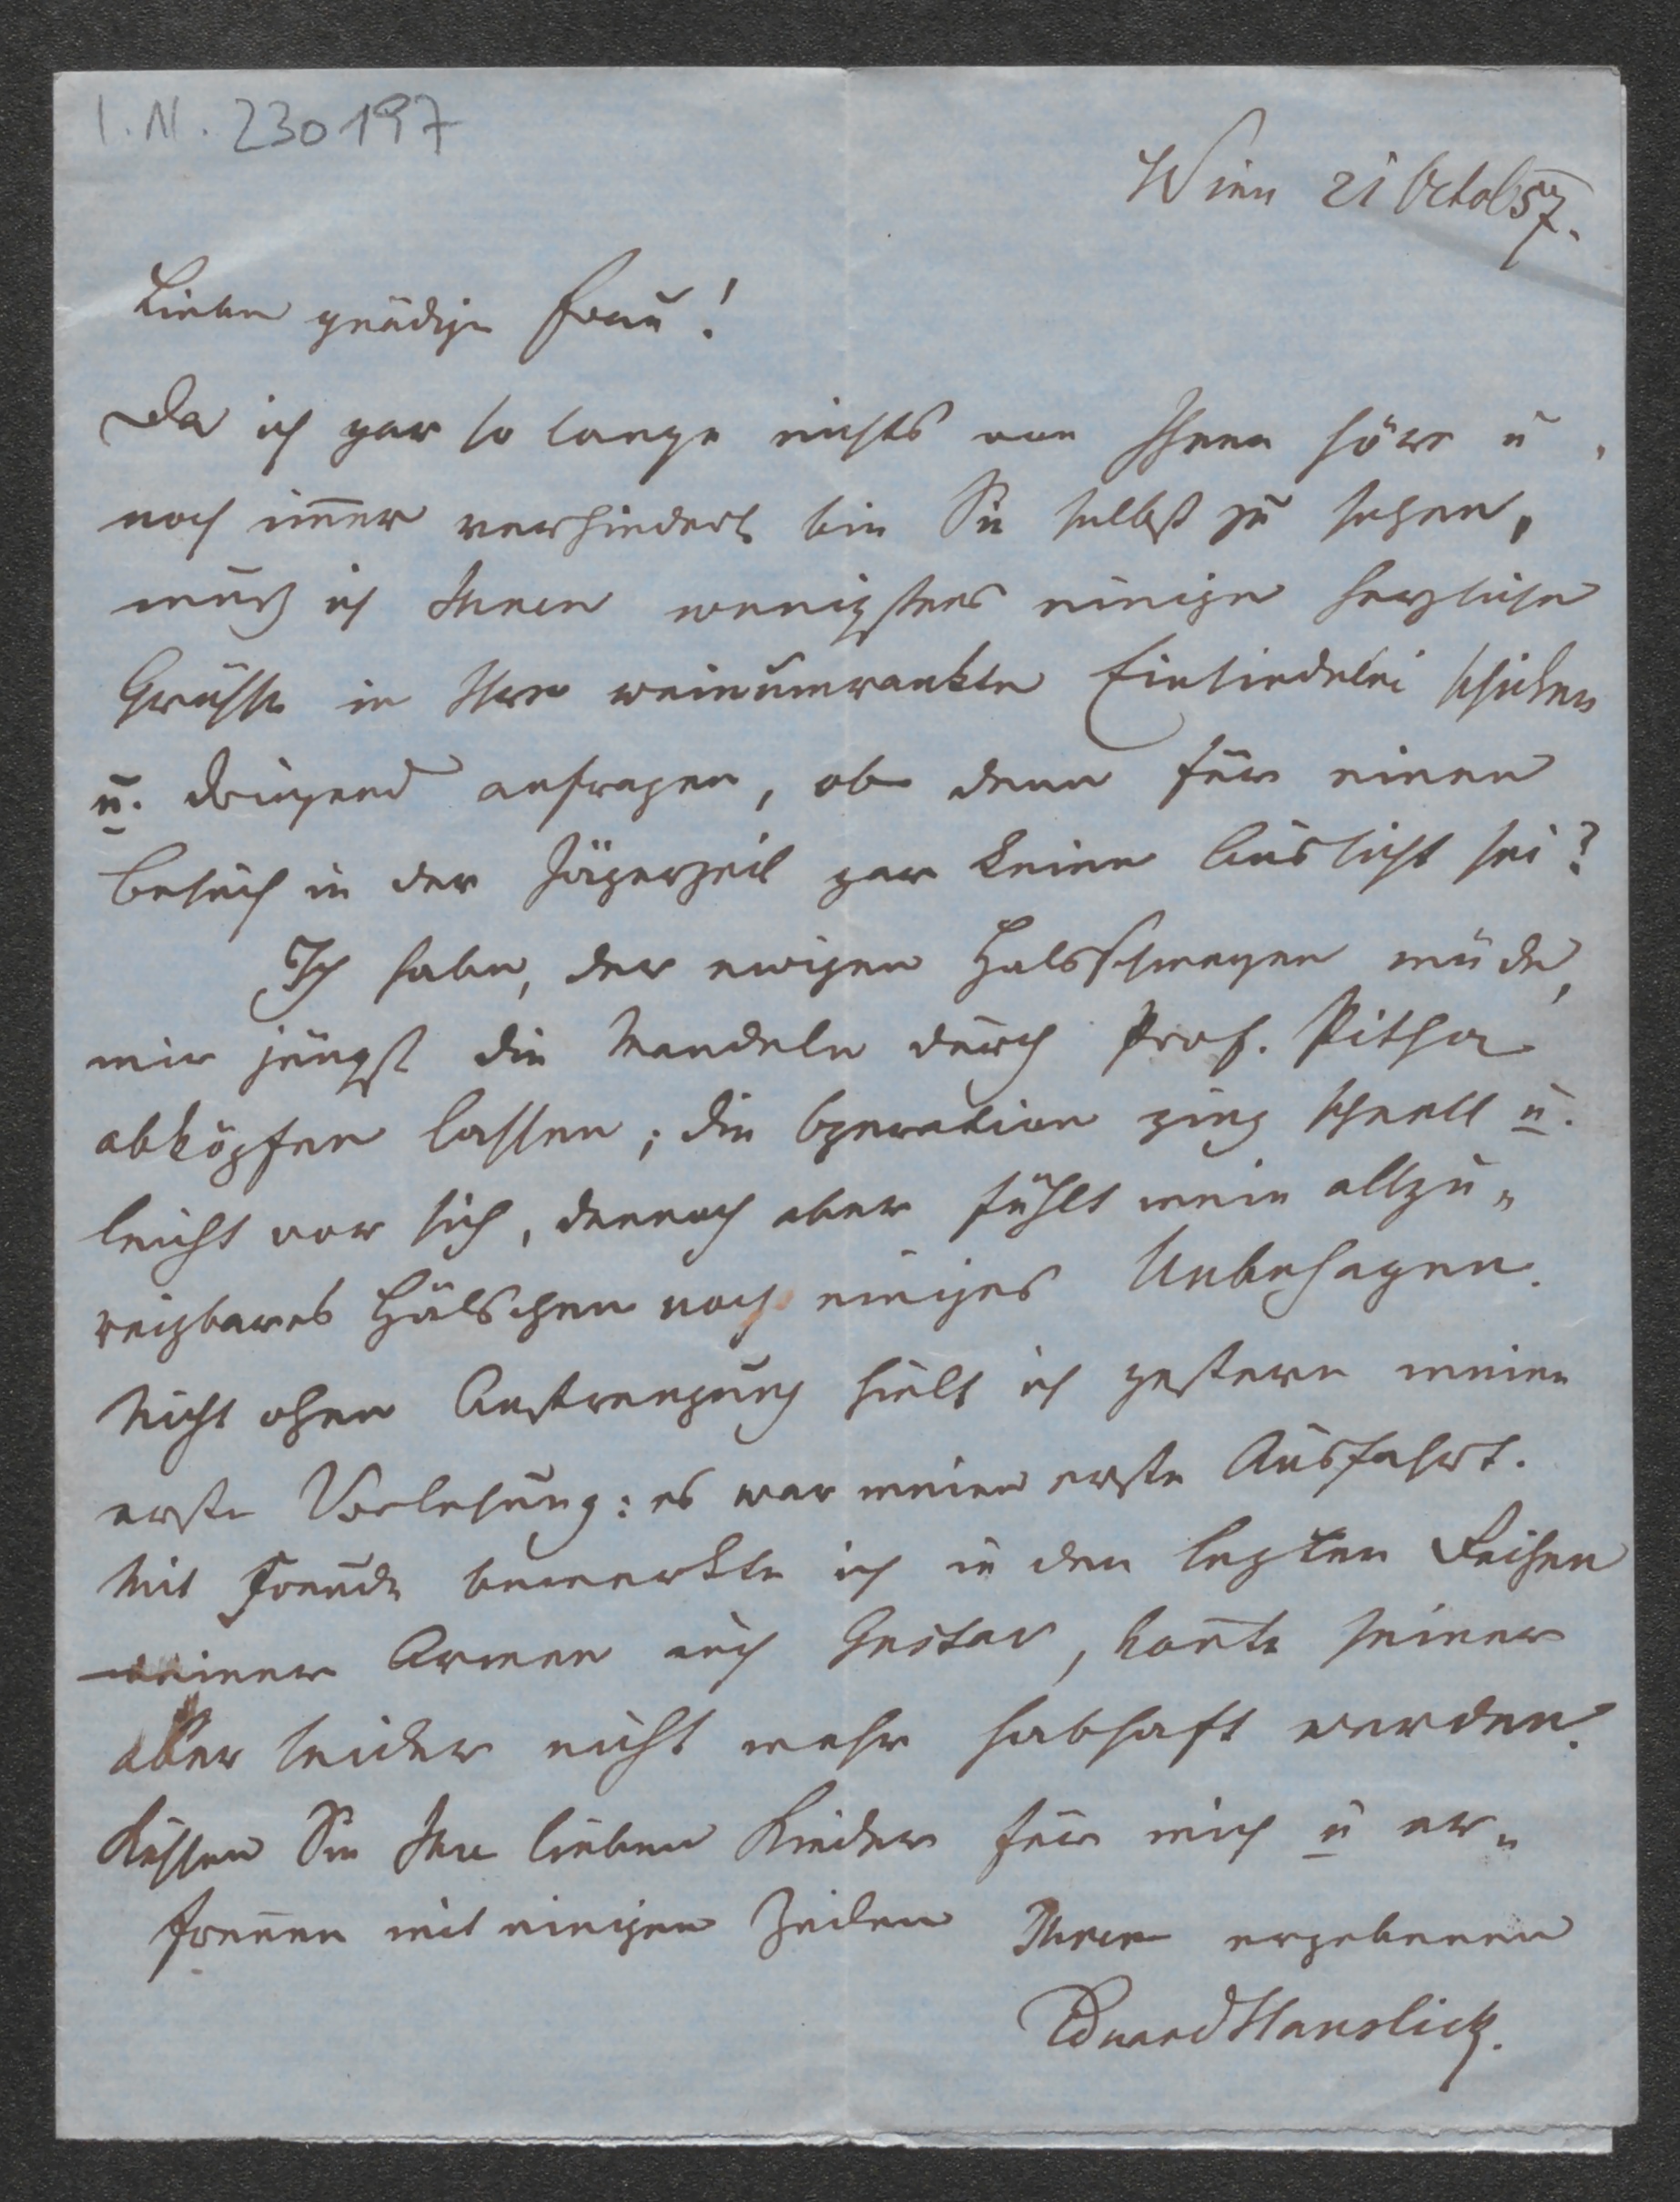 I.N. 230197
Wien 21 Octob 57.
Liebe gnädige Frau!
Da ich gar so lange nichts von Ihnen höre u.
noch im̄er verhindert bin Sie selbst zu sehen,
muß ich Ihnen wenigstens einige herzliche
Grüsse in Ihre weinumrankte Einsiedelei schicken
u. dringend anfragen, ob denn für einen
Besuch in der Jägerzeil gar keine Aussicht sei?
Ich habe, der ewigen Halsschmerzen müde,
mir jüngst die Mandeln durch Prof. Pitha
abköpfen lassen; die Operation ging schnell u.
leicht vor sich, dennoch aber fühlt mein allzu-
reizbares Hälschen noch einiges Unbehagen.
Nicht ohne Anstrengung hielt ich gestern meine
erste Vorlesung: es war meine erste Ausfahrt.
Mit Freude bemerkte ich in den lezten Reihen
meiner Armee auch Gustav, kon̄te seiner
aber leider nicht mehr habhaft werden.
Küssen Sie Ihre lieben Kinder für mich u. er-
freuen mit einigen Zeilen Ihren ergebenen
Eduard Hanslick.